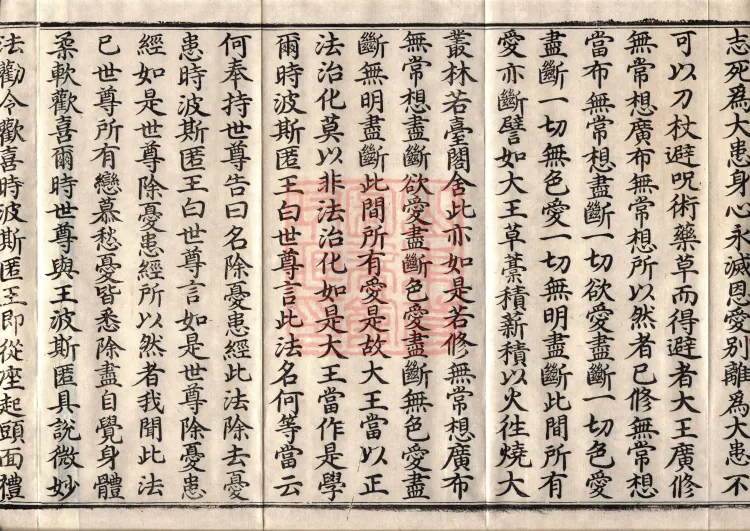 志死爲大患身心永滅恩愛別離爲大患不
可以刀杖避呪術藥草而得避者大王廣修
無常想廣布無常想所以然者已修無常想
當布無常想盡斷一切欲愛盡斷一切色愛
盡斷一切無色愛一切無明盡斷此間所有
愛亦斷譬如大王草藁積薪積以火往燒大
叢林若臺閣舍此亦如是若修無常想廣布
無常想盡斷欲愛盡斷色愛盡斷無色愛盡
斷無明盡斷此間所有愛是故大王當以正
法治化莫以非法治化如是大王當作是學
爾時波斯匿王白世尊言此法名何等當云
何奉持世尊告曰名除憂患經此法除去憂
患時波斯匿王白世尊言如是世尊除憂患
經如是世尊除憂患經所以然者我聞此法
已世尊所有戀慕愁憂皆悉除盡自覺身體
柔軟歡喜爾時世尊與王波斯匿具說微妙
法勸令歡喜時波斯匿王即從座起頭面禮